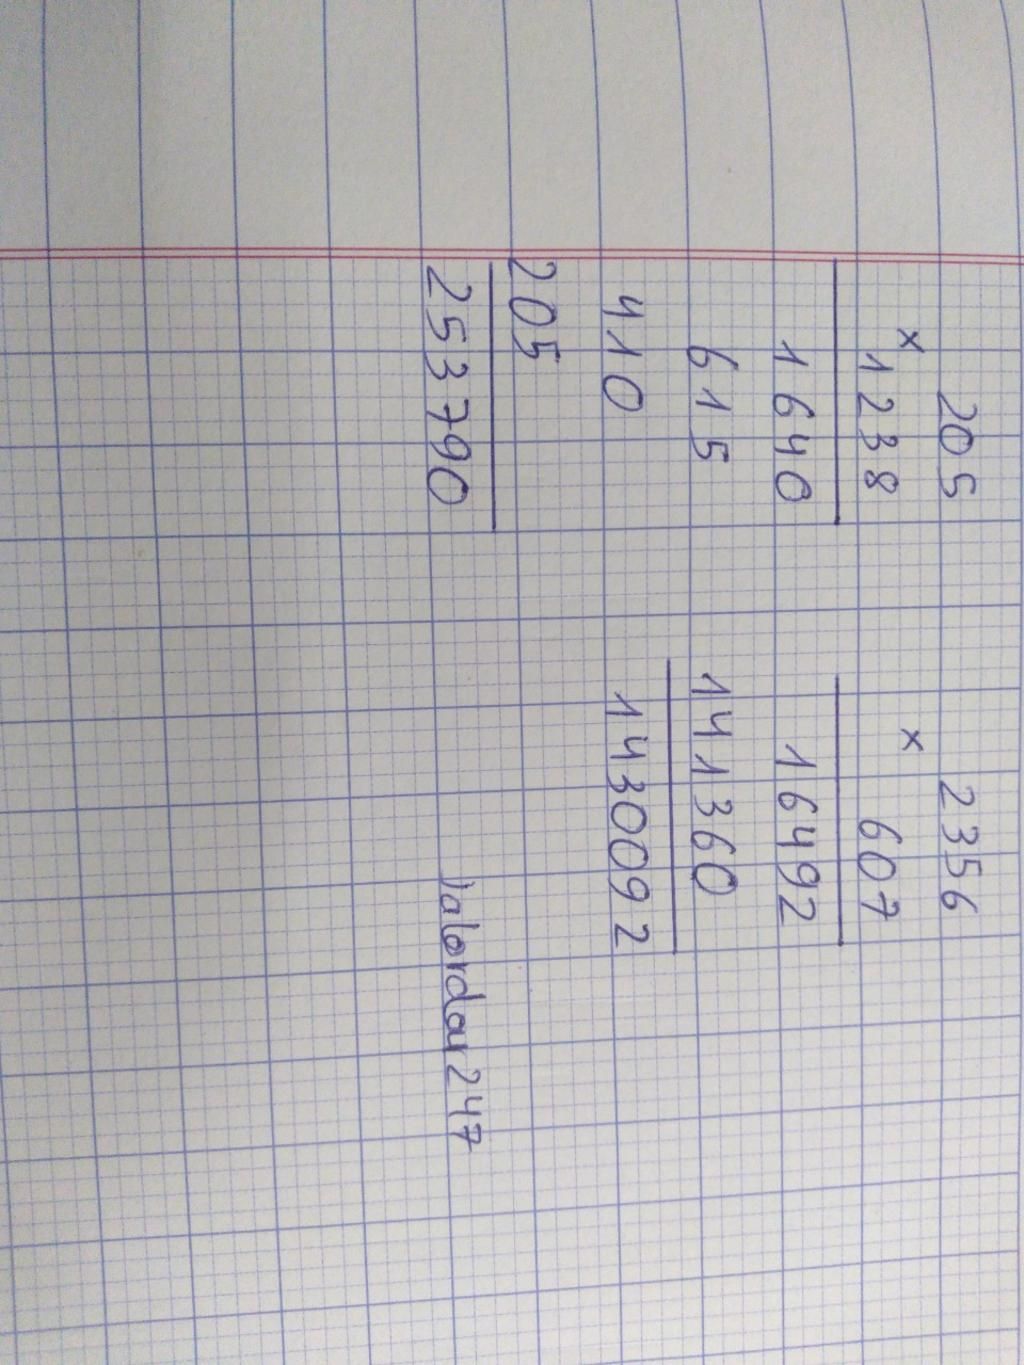 205
× 1238
1640
615
410
205
253790
2356
× 607
16492
141360
1430092